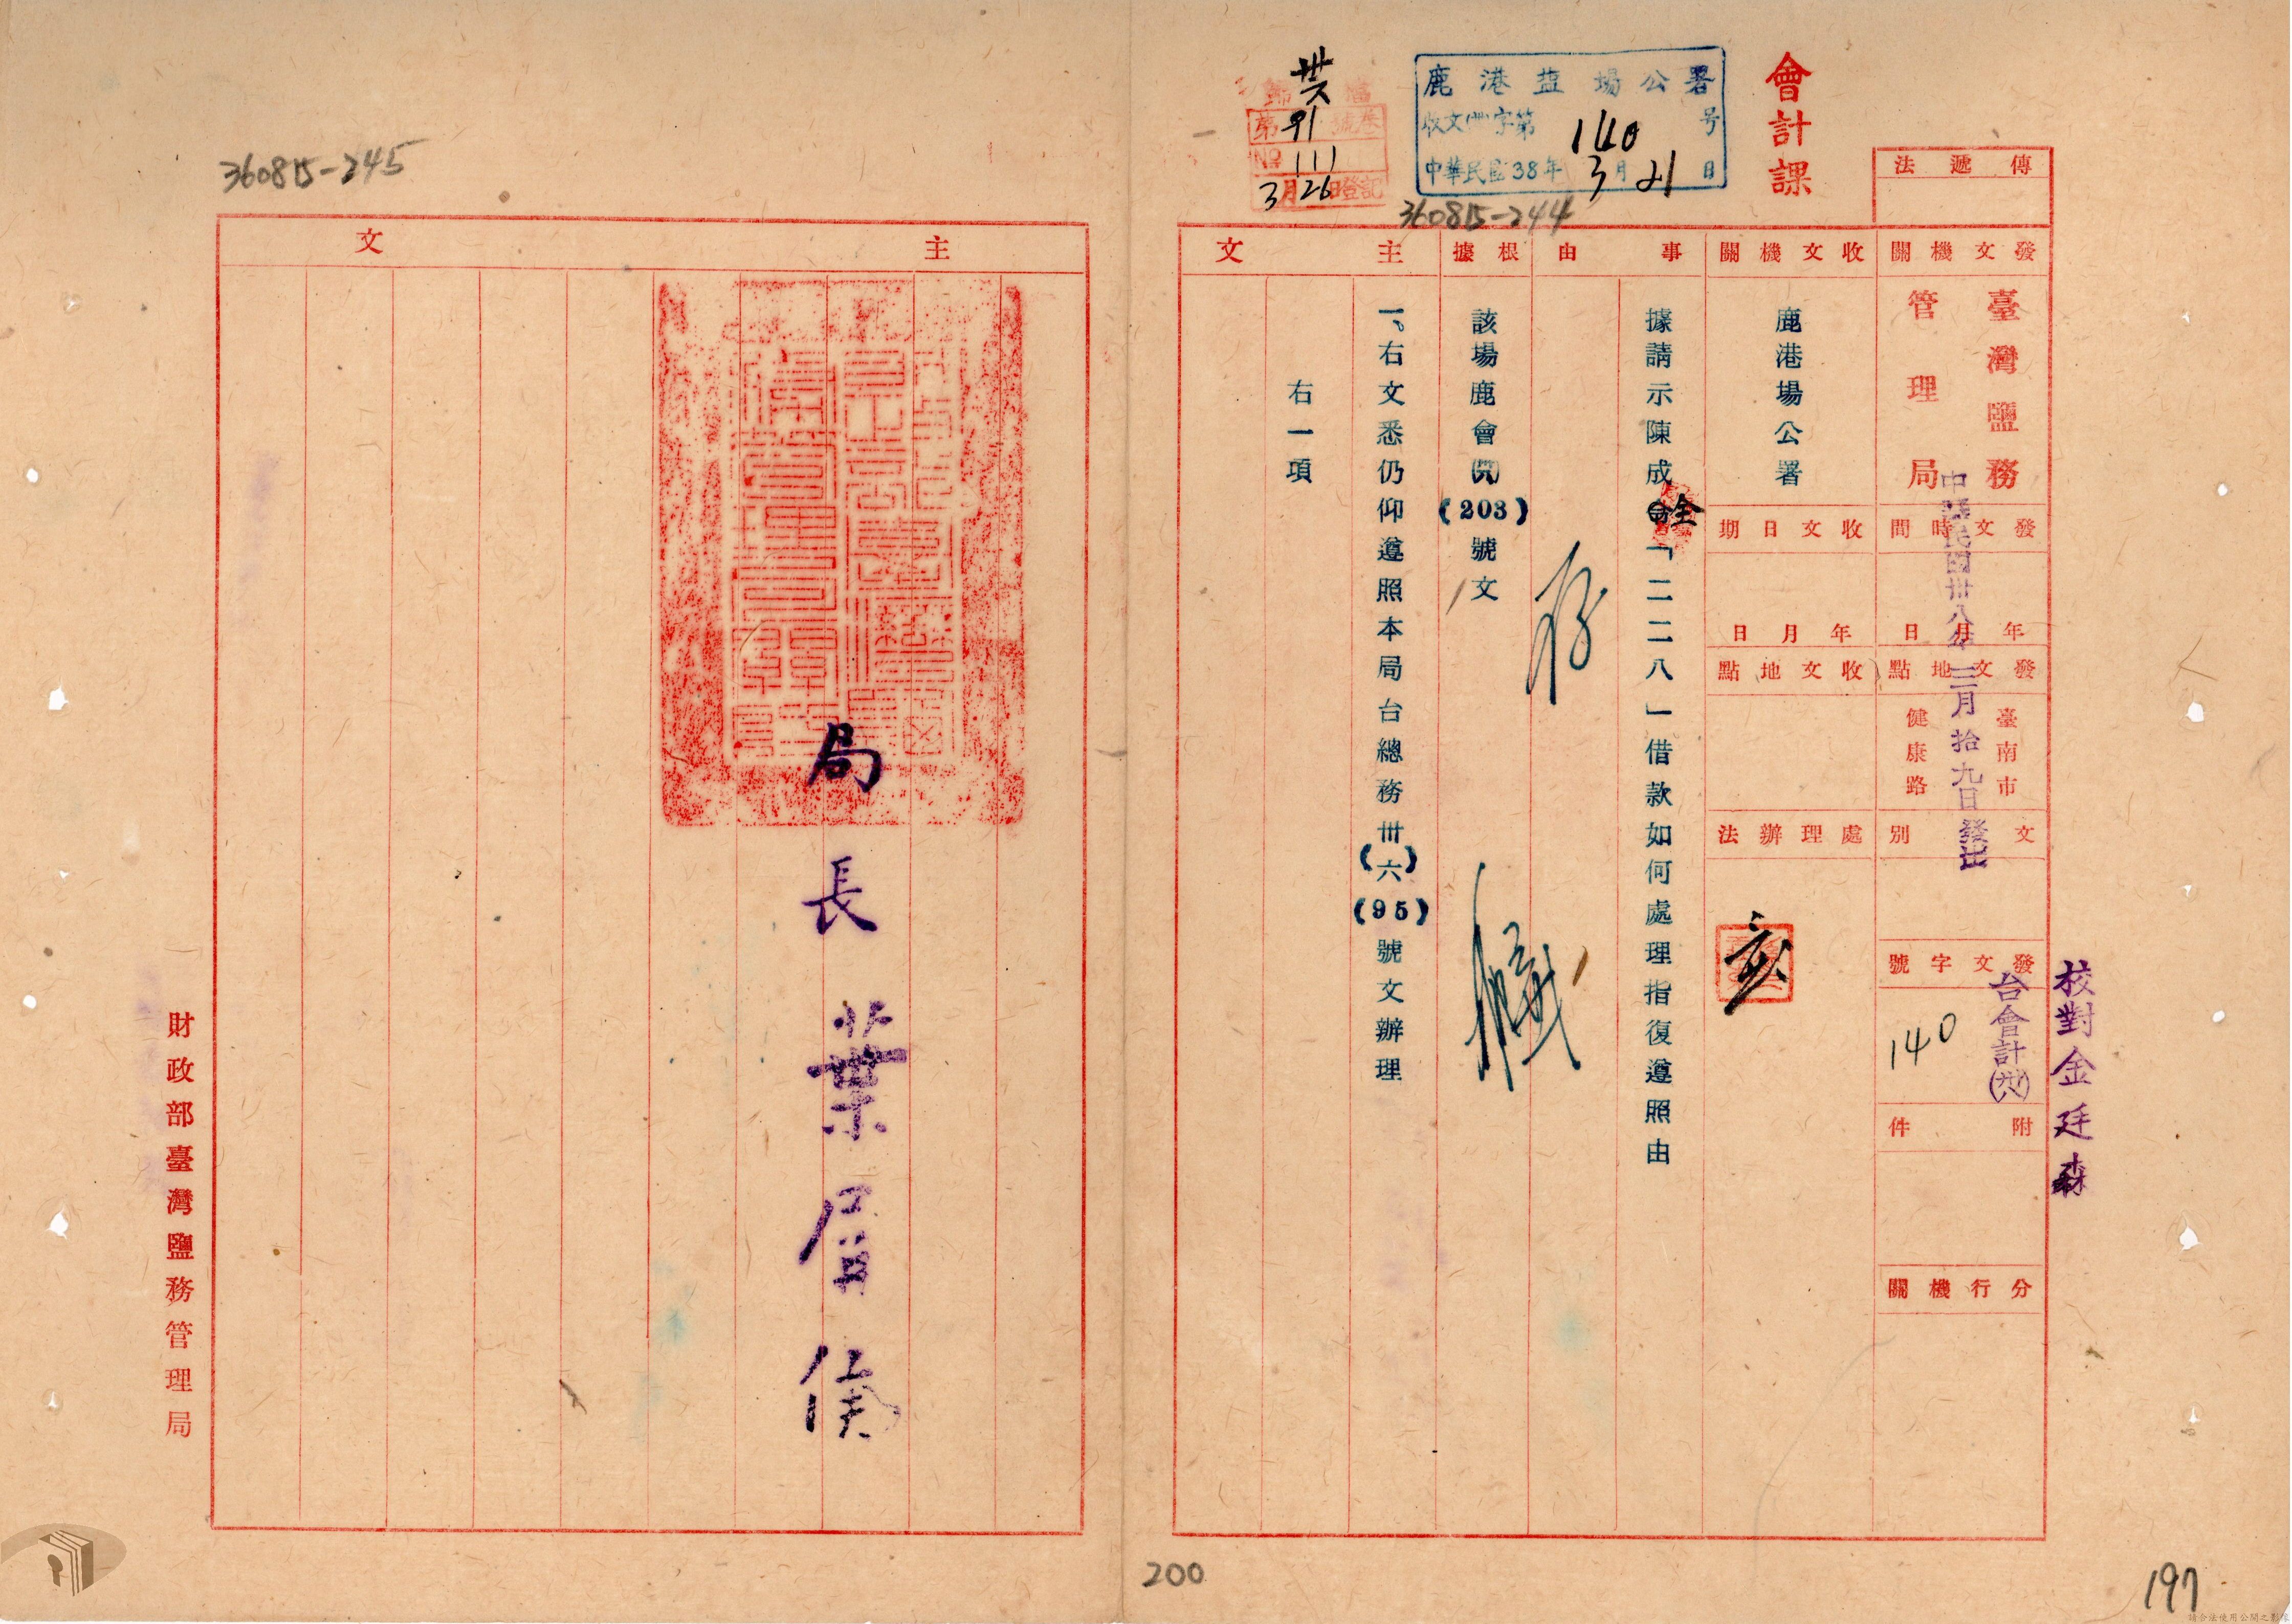 會計課
鹿港鹽場公署
收文(卅)字第140号
中華民國38年3月21日
歸檔
卅六
第91號卷
NO 111
3月26日登記
360815-244
傳遞法
發文機關
臺灣鹽務
管理局
發文時間
年月日
中華民國卅八年三月拾九日發出
發文地點
臺南市
健康路
文別
發文字號
台會計(卅八)
140
附件
分行機關
校對金廷森
收文機關
鹿港場公署
收文日期
年月日
收文地點
處理辦法
事由
據請示陳成全「二二八」借款如何處理指復遵照由
存
根據
該場鹿會(203)號文
主文
一、右文悉仍仰遵照本局台總務卅(六)(95)號文辦理
右一項
200
197
360815-245
主文
局長葉眉僕
財政部臺灣鹽務管理局
請合法使用公開之影像